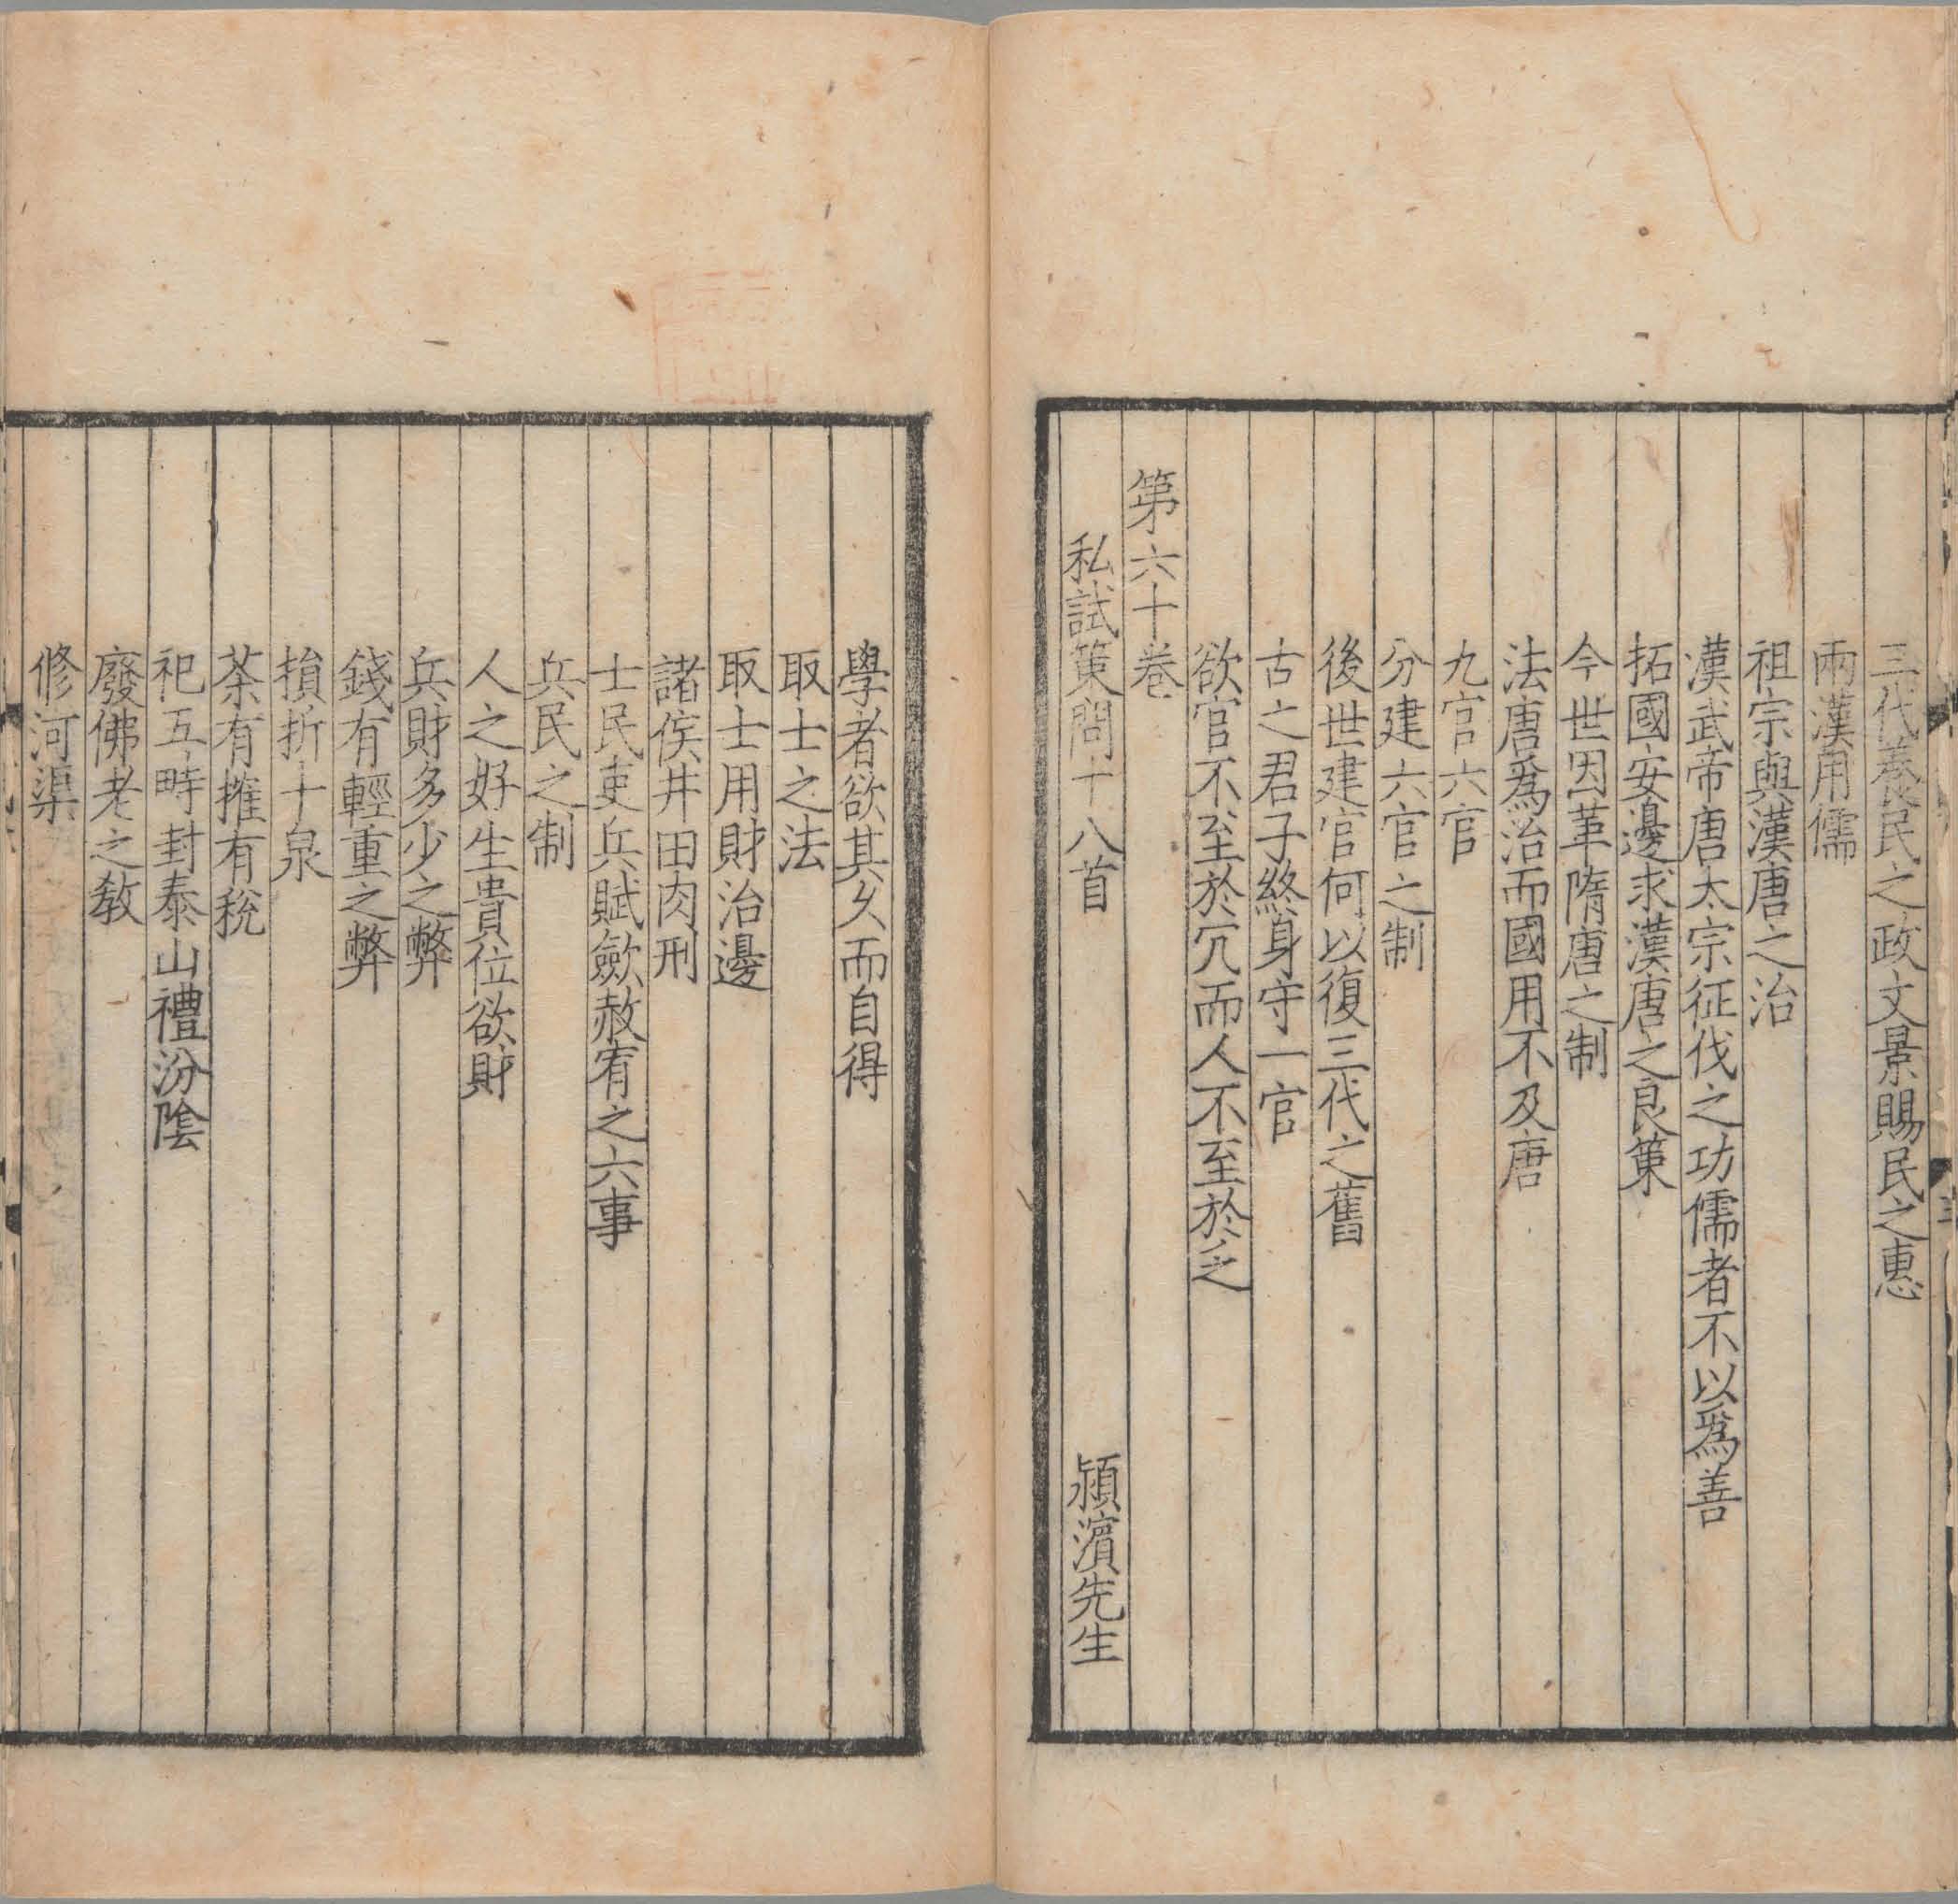 三代養民之政文景賜民之惠
兩漢用儒
祖宗與漢唐之治
漢武帝唐太宗征伐之功儒者不以爲善
拓國安邊求漢唐之良策
今世因革隋唐之制
法唐爲治而國用不及唐
九官六官
分建六官之制
後世建官何以復三代之舊
古之君子終身守一官
欲官不至於冗而人不至於乏
第六十卷
私試策問十八首 潁濱先生
學者欲其久而自得
取士之法
取士用財治邊
諸侯井田肉刑
士民吏兵賦歛赦宥之六事
兵民之制
人之好生貴位欲財
兵財多少之弊
錢有輕重之弊
損折十泉
茶有搉有稅
祀五畤封泰山禮汾陰
廢佛老之教
修河渠